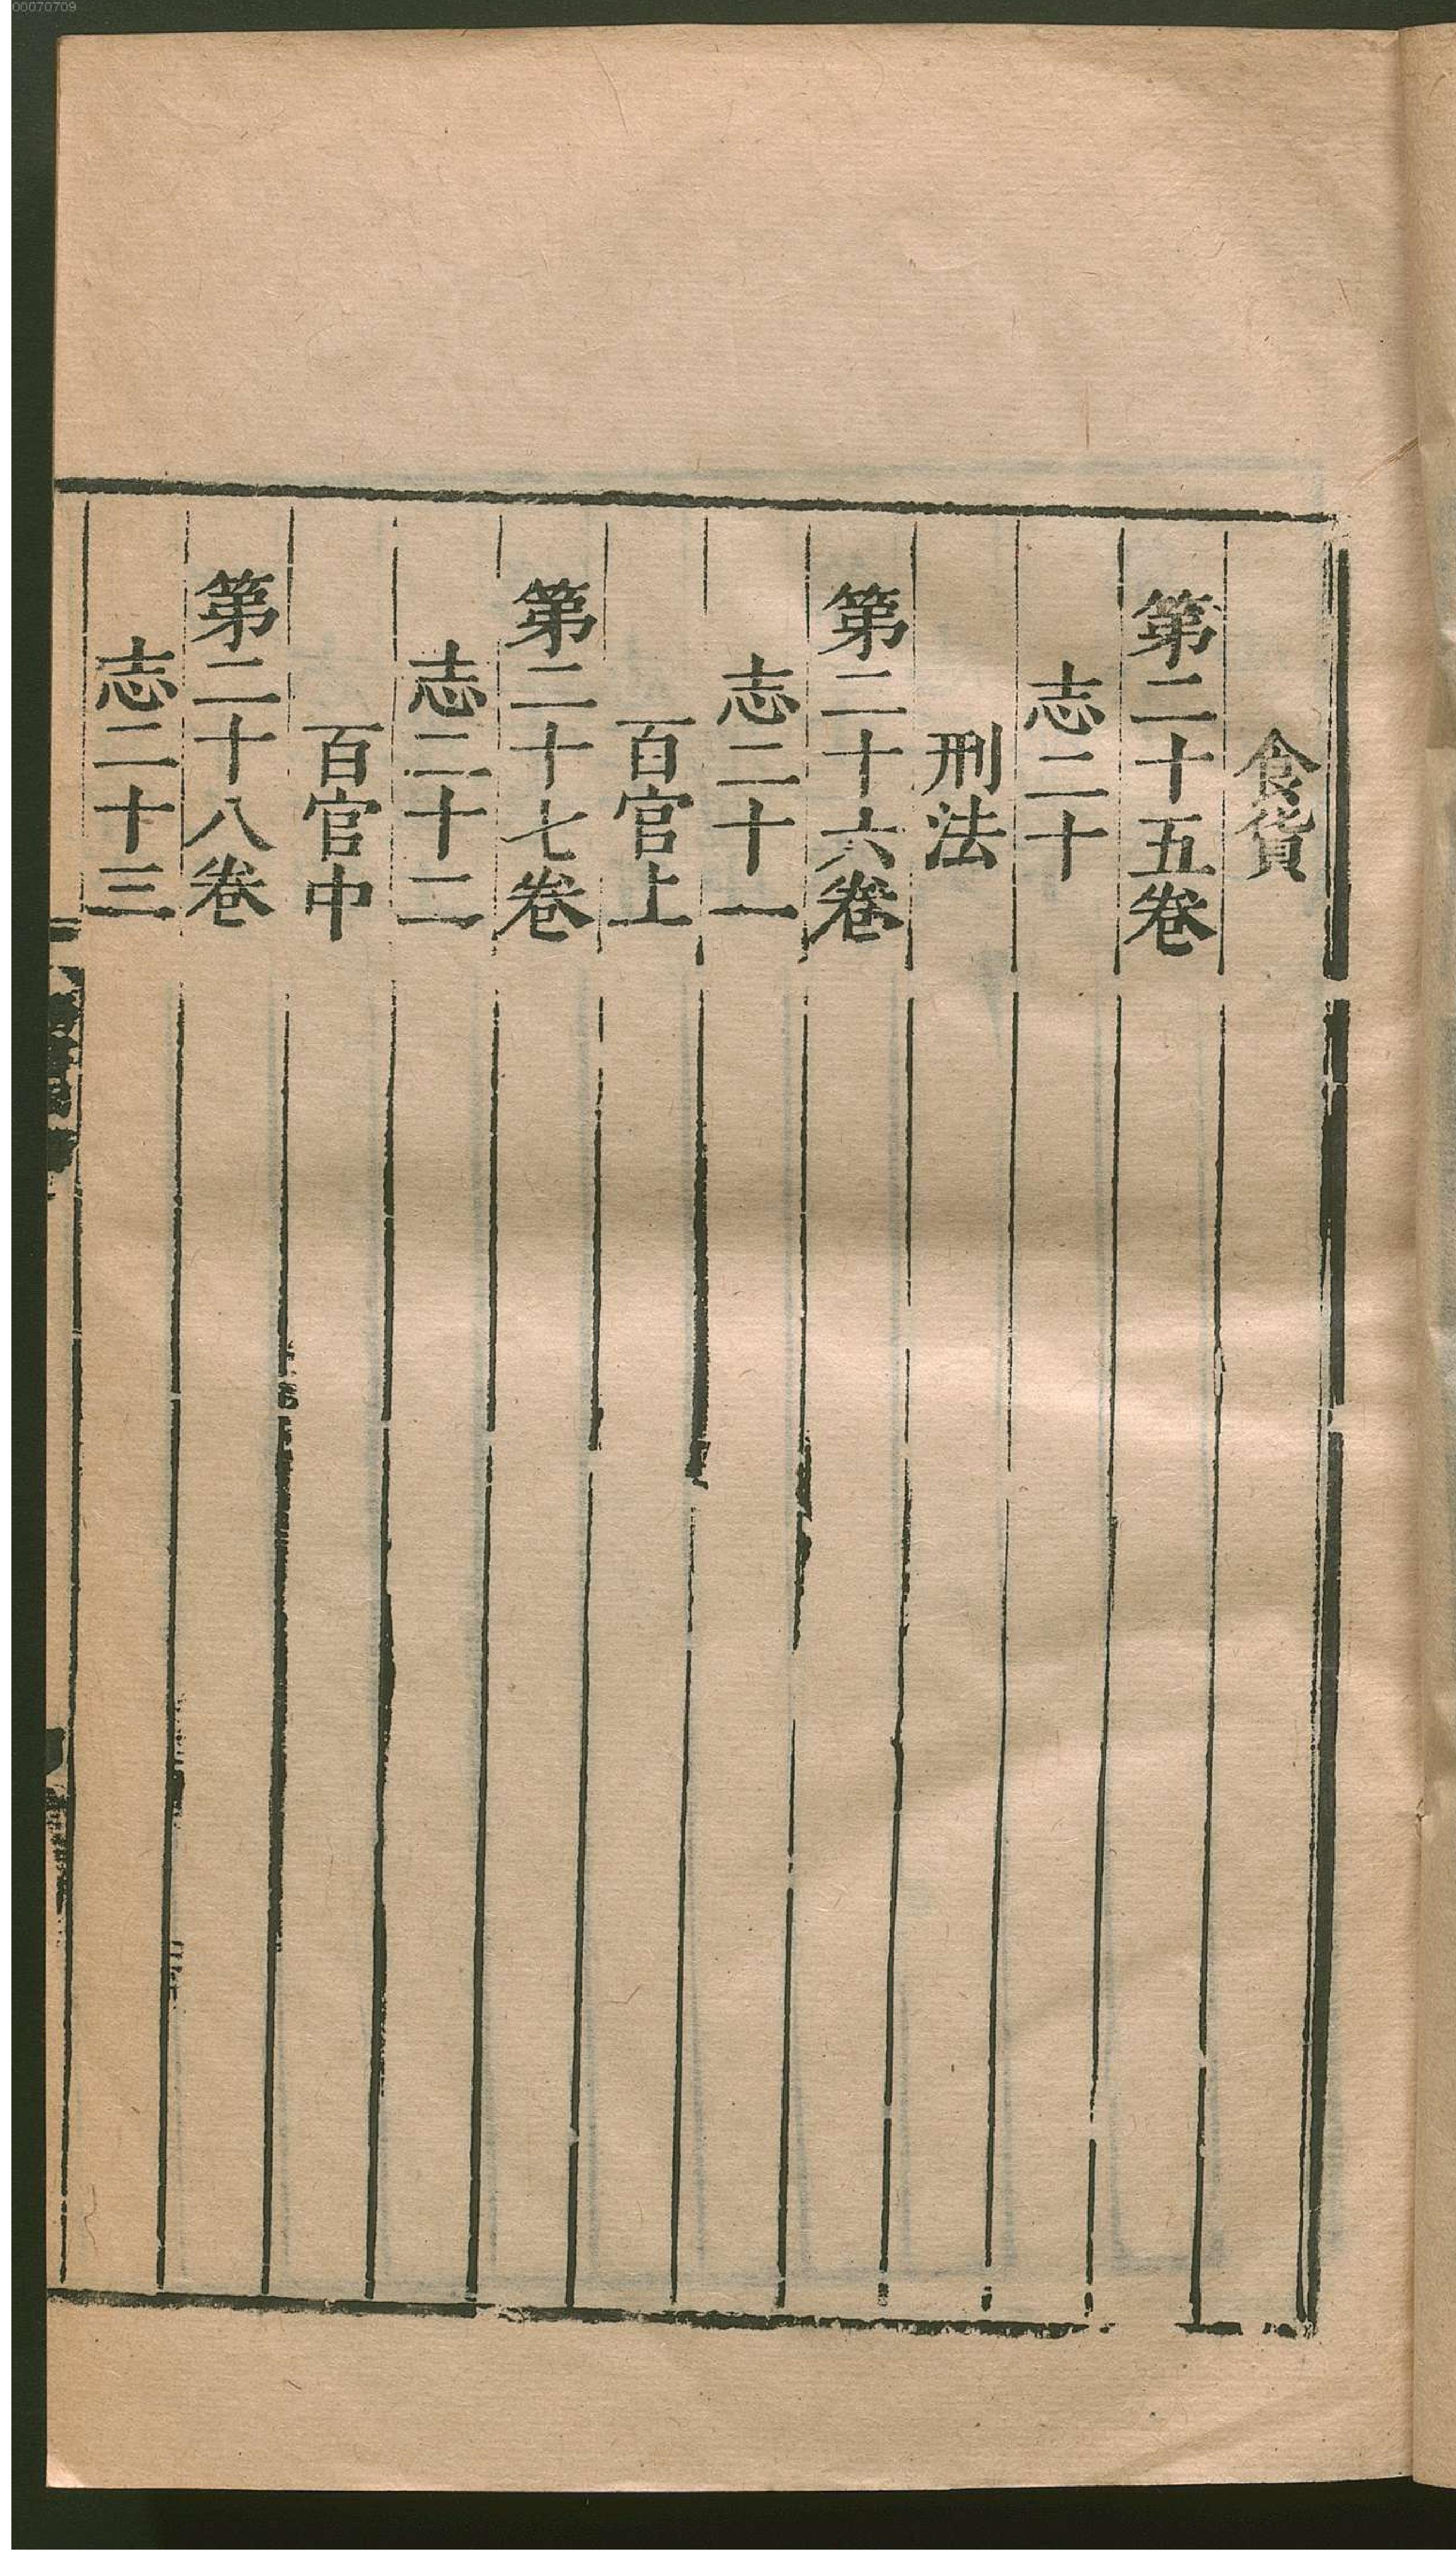 00070709
食貨
第二十五卷
志二十
刑法
第二十六卷
志二十一
百官上
第二十七卷
志二十二
百官中
第二十八卷
志二十三